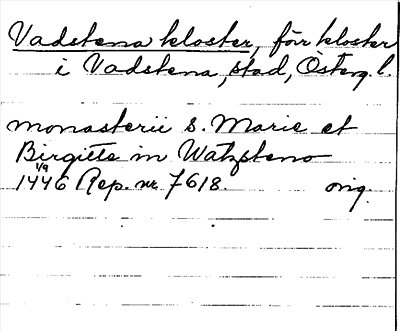 Vadstena kloster, för kloster
i Vadstena, stad, Österg. l.
monasterii S. Marie et
Birgitte in Watzsteno
1446 1/9 Rep. nr 7618. orig.